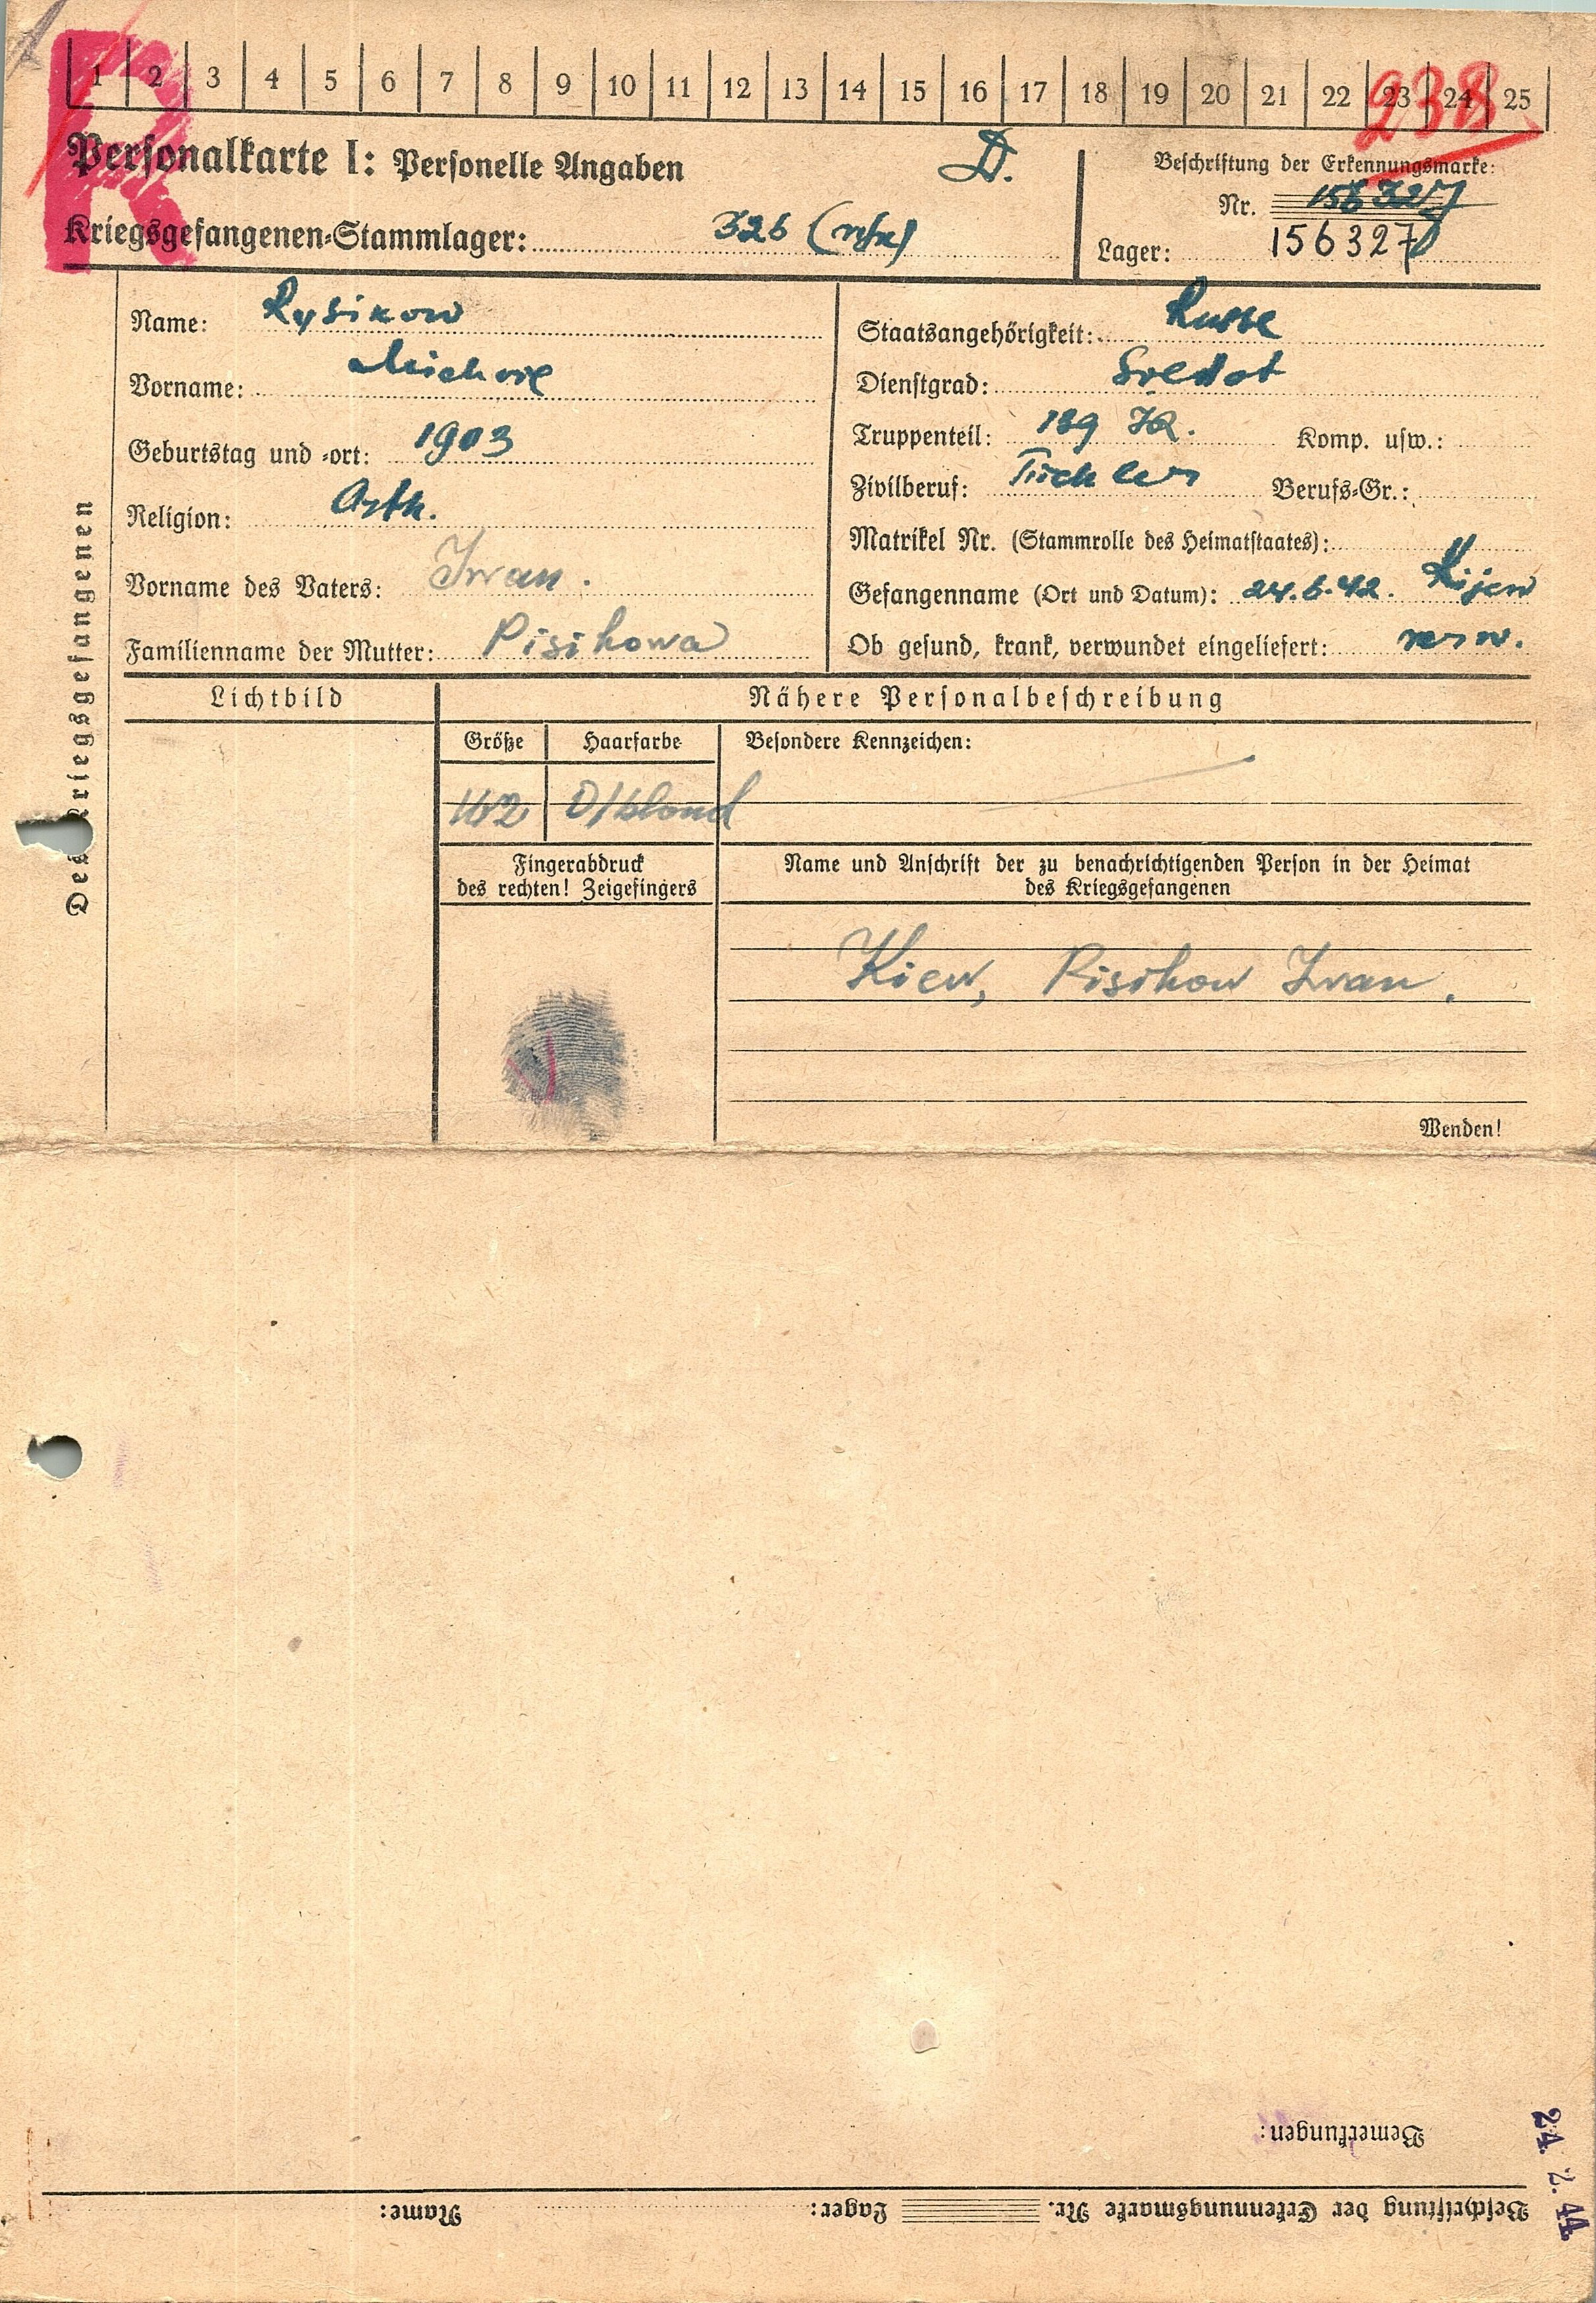 1 2 3 4 5 6 7 8 9 10 11 12 13 14 15 16 17 18 19 20 21 22 23 24 25
238
R
Personalkarte I: Personelle Angaben
D.
Beschriftung der Erkennungsmarke:
Nr. 156327
Kriegsgefangenen-Stammlager: 326
Lager: 156327
Des Kriegsgefangenen
Name: Rysikow
Vorname: Michail
Geburtstag und -ort: 1903
Religion: Orth.
Vorname des Vaters: Iwan.
Familienname der Mutter: Pisikowa
Staatsangehörigkeit: Russe
Dienstgrad: Soldat
Truppenteil: 189 IR. Komp. usw.:
Zivilberuf: Tischler Berufs-Gr.:
Matrikel Nr. (Stammrolle des Heimatstaates):
Gefangenname (Ort und Datum): 24.6.42. Kijew
Ob gesund, krank, verwundet eingeliefert: verw.
Lichtbild
Nähere Personalbeschreibung
Größe Haarfarbe Besondere Kennzeichen:
162 D/blond
Fingerabdruck
des rechten! Zeigefingers
Name und Anschrift der zu benachrichtigenden Person in der Heimat
des Kriegsgefangenen
Kiew, Pisikow Iwan.
Wenden!
Bemerkungen:
Beschriftung der Erkennungsmarke Nr. Lager: Name:
24. 2. 44